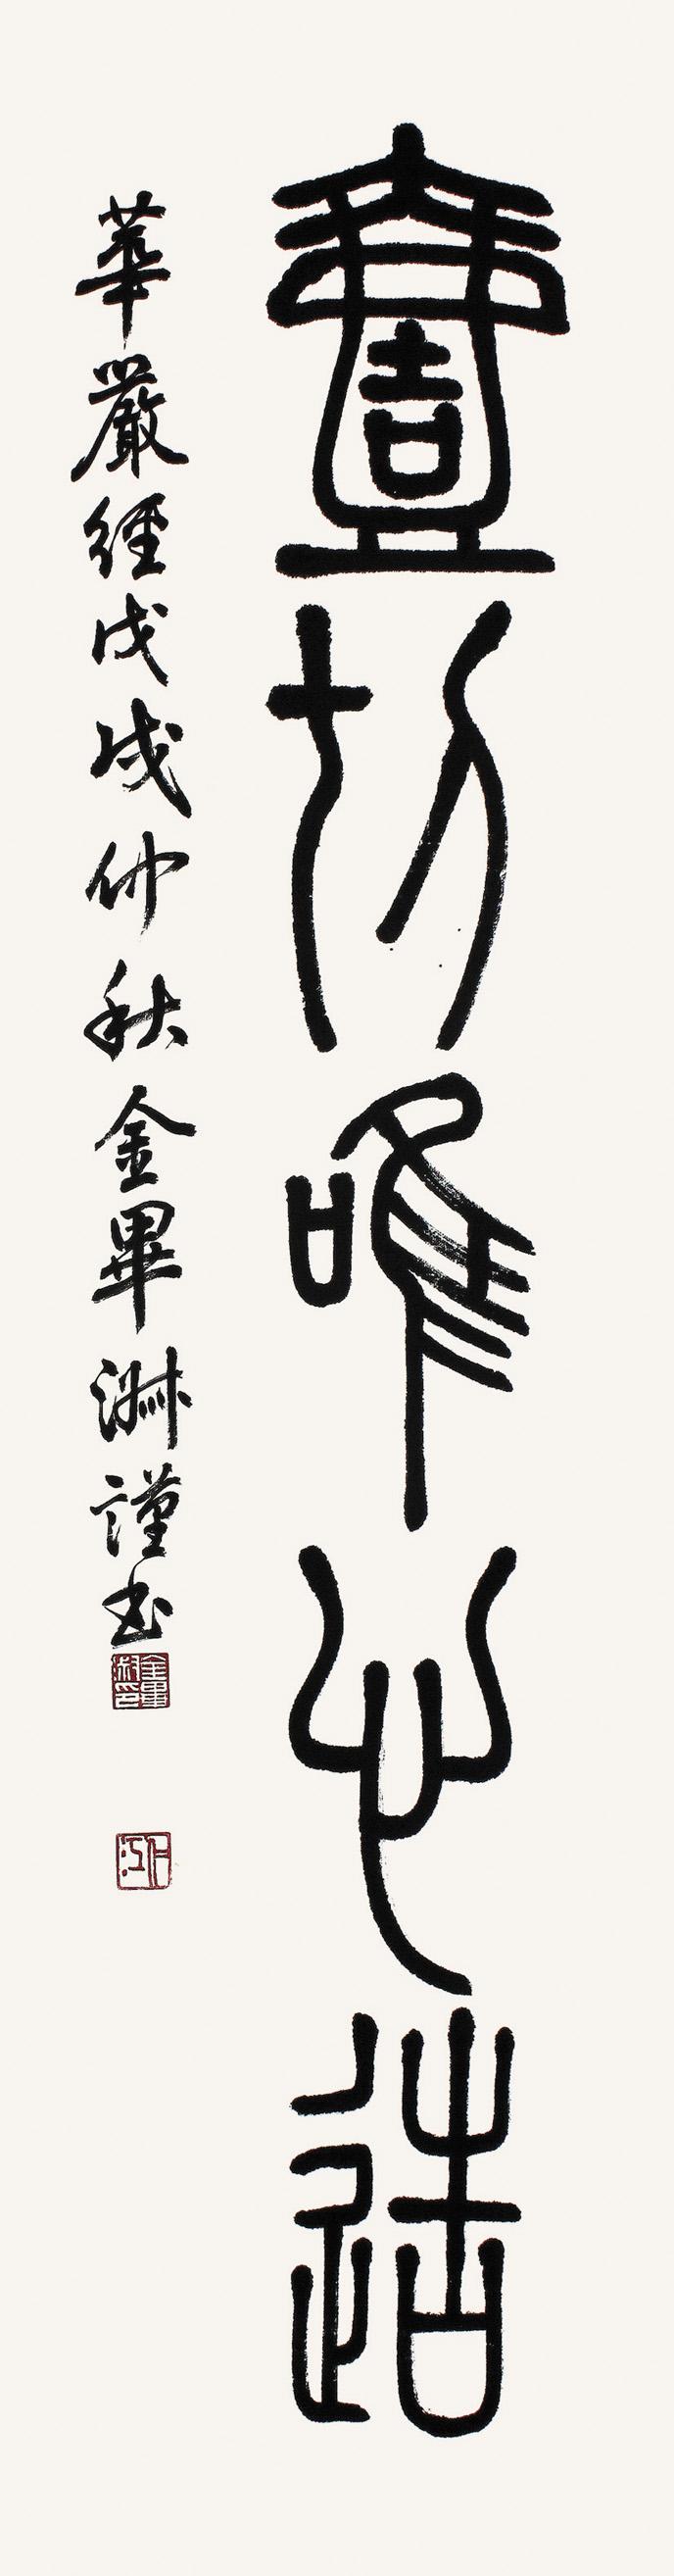 壹切唯心造
華嚴經戊戌仲秋金畢淋謹書